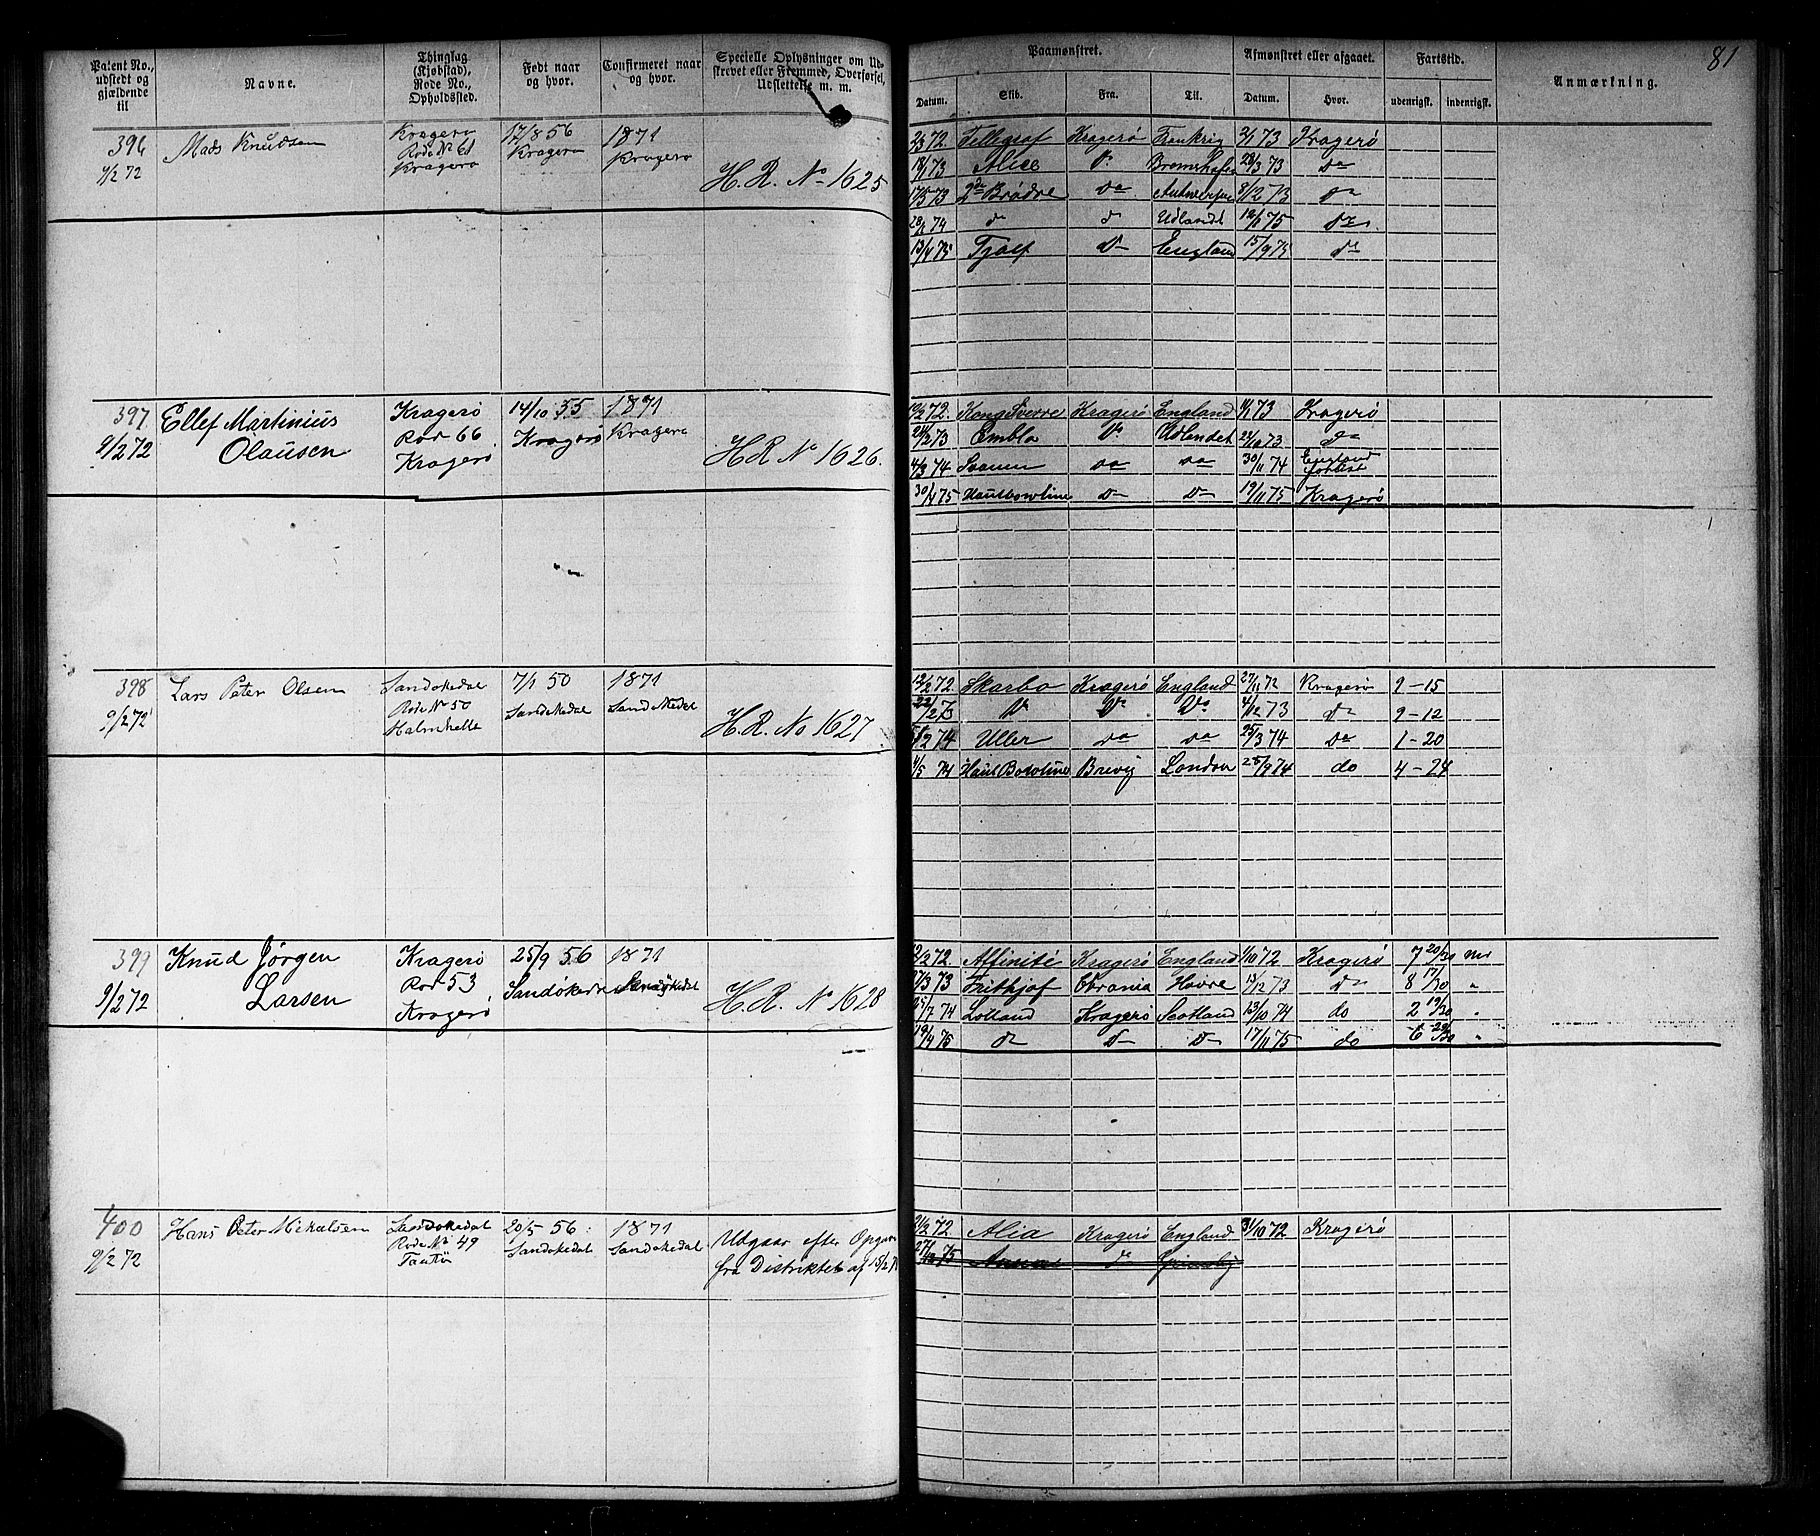 81
Patent No., udstedt og gjældende til
Navne.
Thinglag (Kjøbstad), Rode No., Opholdssted.
Født naar og hvor.
Confirmeret naar og hvor.
Specielle Oplysninger om Udskrevet eller Fremmed, Overførsel, Udslettelse m. m.
Paamønstret.
Afmønstret eller afgaaet.
Fartstid.
Anmærkning.
Datum. Skib. Fra. Til. Datum. Hvor. udenrigsk. indenrigsk.
396 Mads Knudsen Kragerø 17/8 56 1871
9/2 72 Rode No 61 Kragerø Kragerø
Kragerø H.R. No 1625
Kragerø Frankrig 2/1 73 Kragerø
18/1 73 Alice Do Bremerhafen 28/3 73 do
17/5 73 2de Brødre do Antwerpen 8/12 73 do
do do Udlandet 75 do
13/4 75 Tjalf Do England 15/9 75 do
397 Ellef Martinius Kragerø 14/10 55 1871
9/2 72 Olausen Rod 66 Kragerø Kragerø
Kragerø H.R. No 1626.
72. Kong Sverre Kragerø England 73 Kragerø
73 Embla Do Udlandet 73 Do
4/3 74 Svanen do do 30/11 74 England forlist
30/4 75 Haulbowline Do Do 19/11 75 Kragerø
398 Lars Peter Olsen Sandøkedal 7/1 50 1871
9/2 72 Rode No 50 Sandøkedal Sandøkedal
Halmhelle H.R. No 1627
12/2 72. Skarbo Kragerø England 27/11 72 Kragerø 9-15
22/2 73 Do Do Do 4/12 73 Do 9-12
5/2 74 Uller do do 25/3 74 Do 1-20
4/5 74 Haulbowline Brevig London 28/9 74 do 4-24
399 Knud Jørgen Kragerø 25/9 56 1871
9/2 72 Larsen Rod 53 Sandøkedal Sandøkedal
Kragerø H.R. No 1628
12/2 72. Affinité Kragerø England 1/10 72 Kragerø 7 20/30
17/3 73 Frithjof Havre 15/12 73 Do 8 17/30 "
25/7 74 Lolland Kragerø Scotland 13/10 74 do 2 19/30 "
19/4 75 do Do Do 17/11 75 do 6 29/30 "
400 Hans Peter Mikalsen Sandøkedal 20/5 56. 1871
9/2 72 Rode No 49 Sandøkedal Sandøkedal
Udgaar efter
fra Distriktet af 15/2
72. Alia Kragerø England 31/10 72 Kragerø
75 Anna Do Grimsby